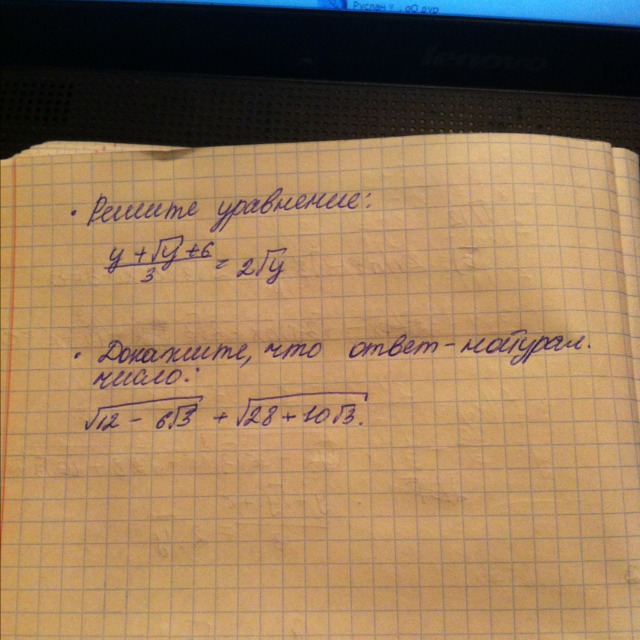 lenovo
• Решите уравнение:
y + √y + 6
3
= 2√y
• Докажите, что ответ - натурал.
число:
√12 - 6√3 + √28 + 10√3.